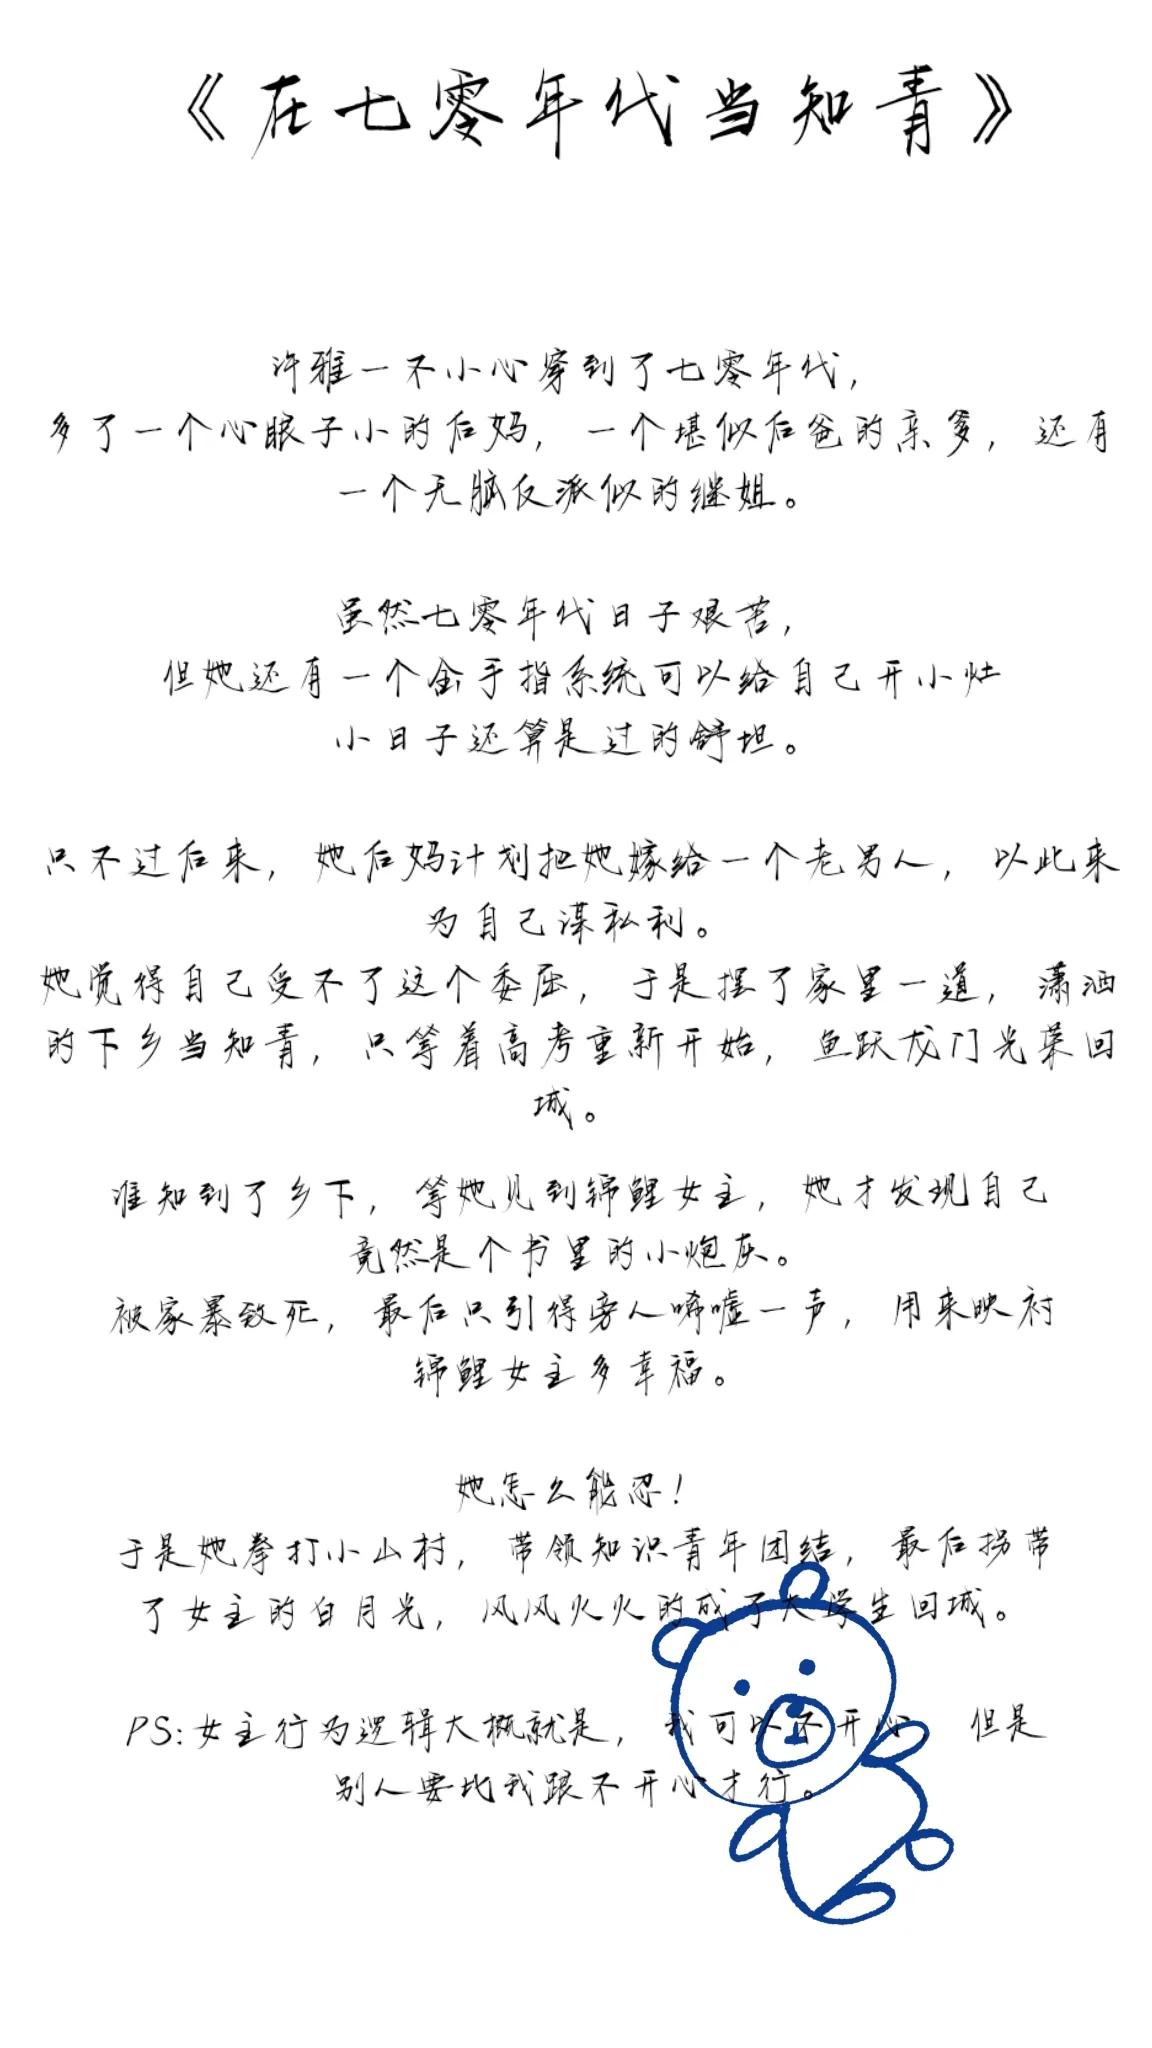 《在七零年代当知青》
许雅一不小心穿到了七零年代，
多了一个心眼子小的后妈，一个堪似后爸的亲爹，还有
一个无脑反派似的继姐。
虽然七零年代日子艰苦，
但她还有一个金手指系统可以给自己开小灶
小日子还算是过的舒坦。
只不过后来，她后妈计划把她嫁给一个老男人，以此来
为自己谋私利。
她觉得自己受不了这个委屈，于是摆了家里一道，潇洒
的下乡当知青，只等着高考重新开始，鱼跃龙门光荣回
城。
谁知到了乡下，等她见到锦鲤女主，她才发现自己
竟然是个书里的小炮灰。
被家暴致死，最后只引得旁人唏嘘一声，用来映衬
锦鲤女主多幸福。
她怎么能忍！
于是她拳打小山村，带领知识青年团结，最后拐带
了女主的白月光，风风火火的成了大学生回城。
PS:女主行为逻辑大概就是，我可以不开心 但是
别人要比我跟不开心才行。